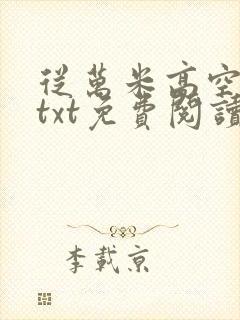 從萬米高空
txt免費閱讀
李載京